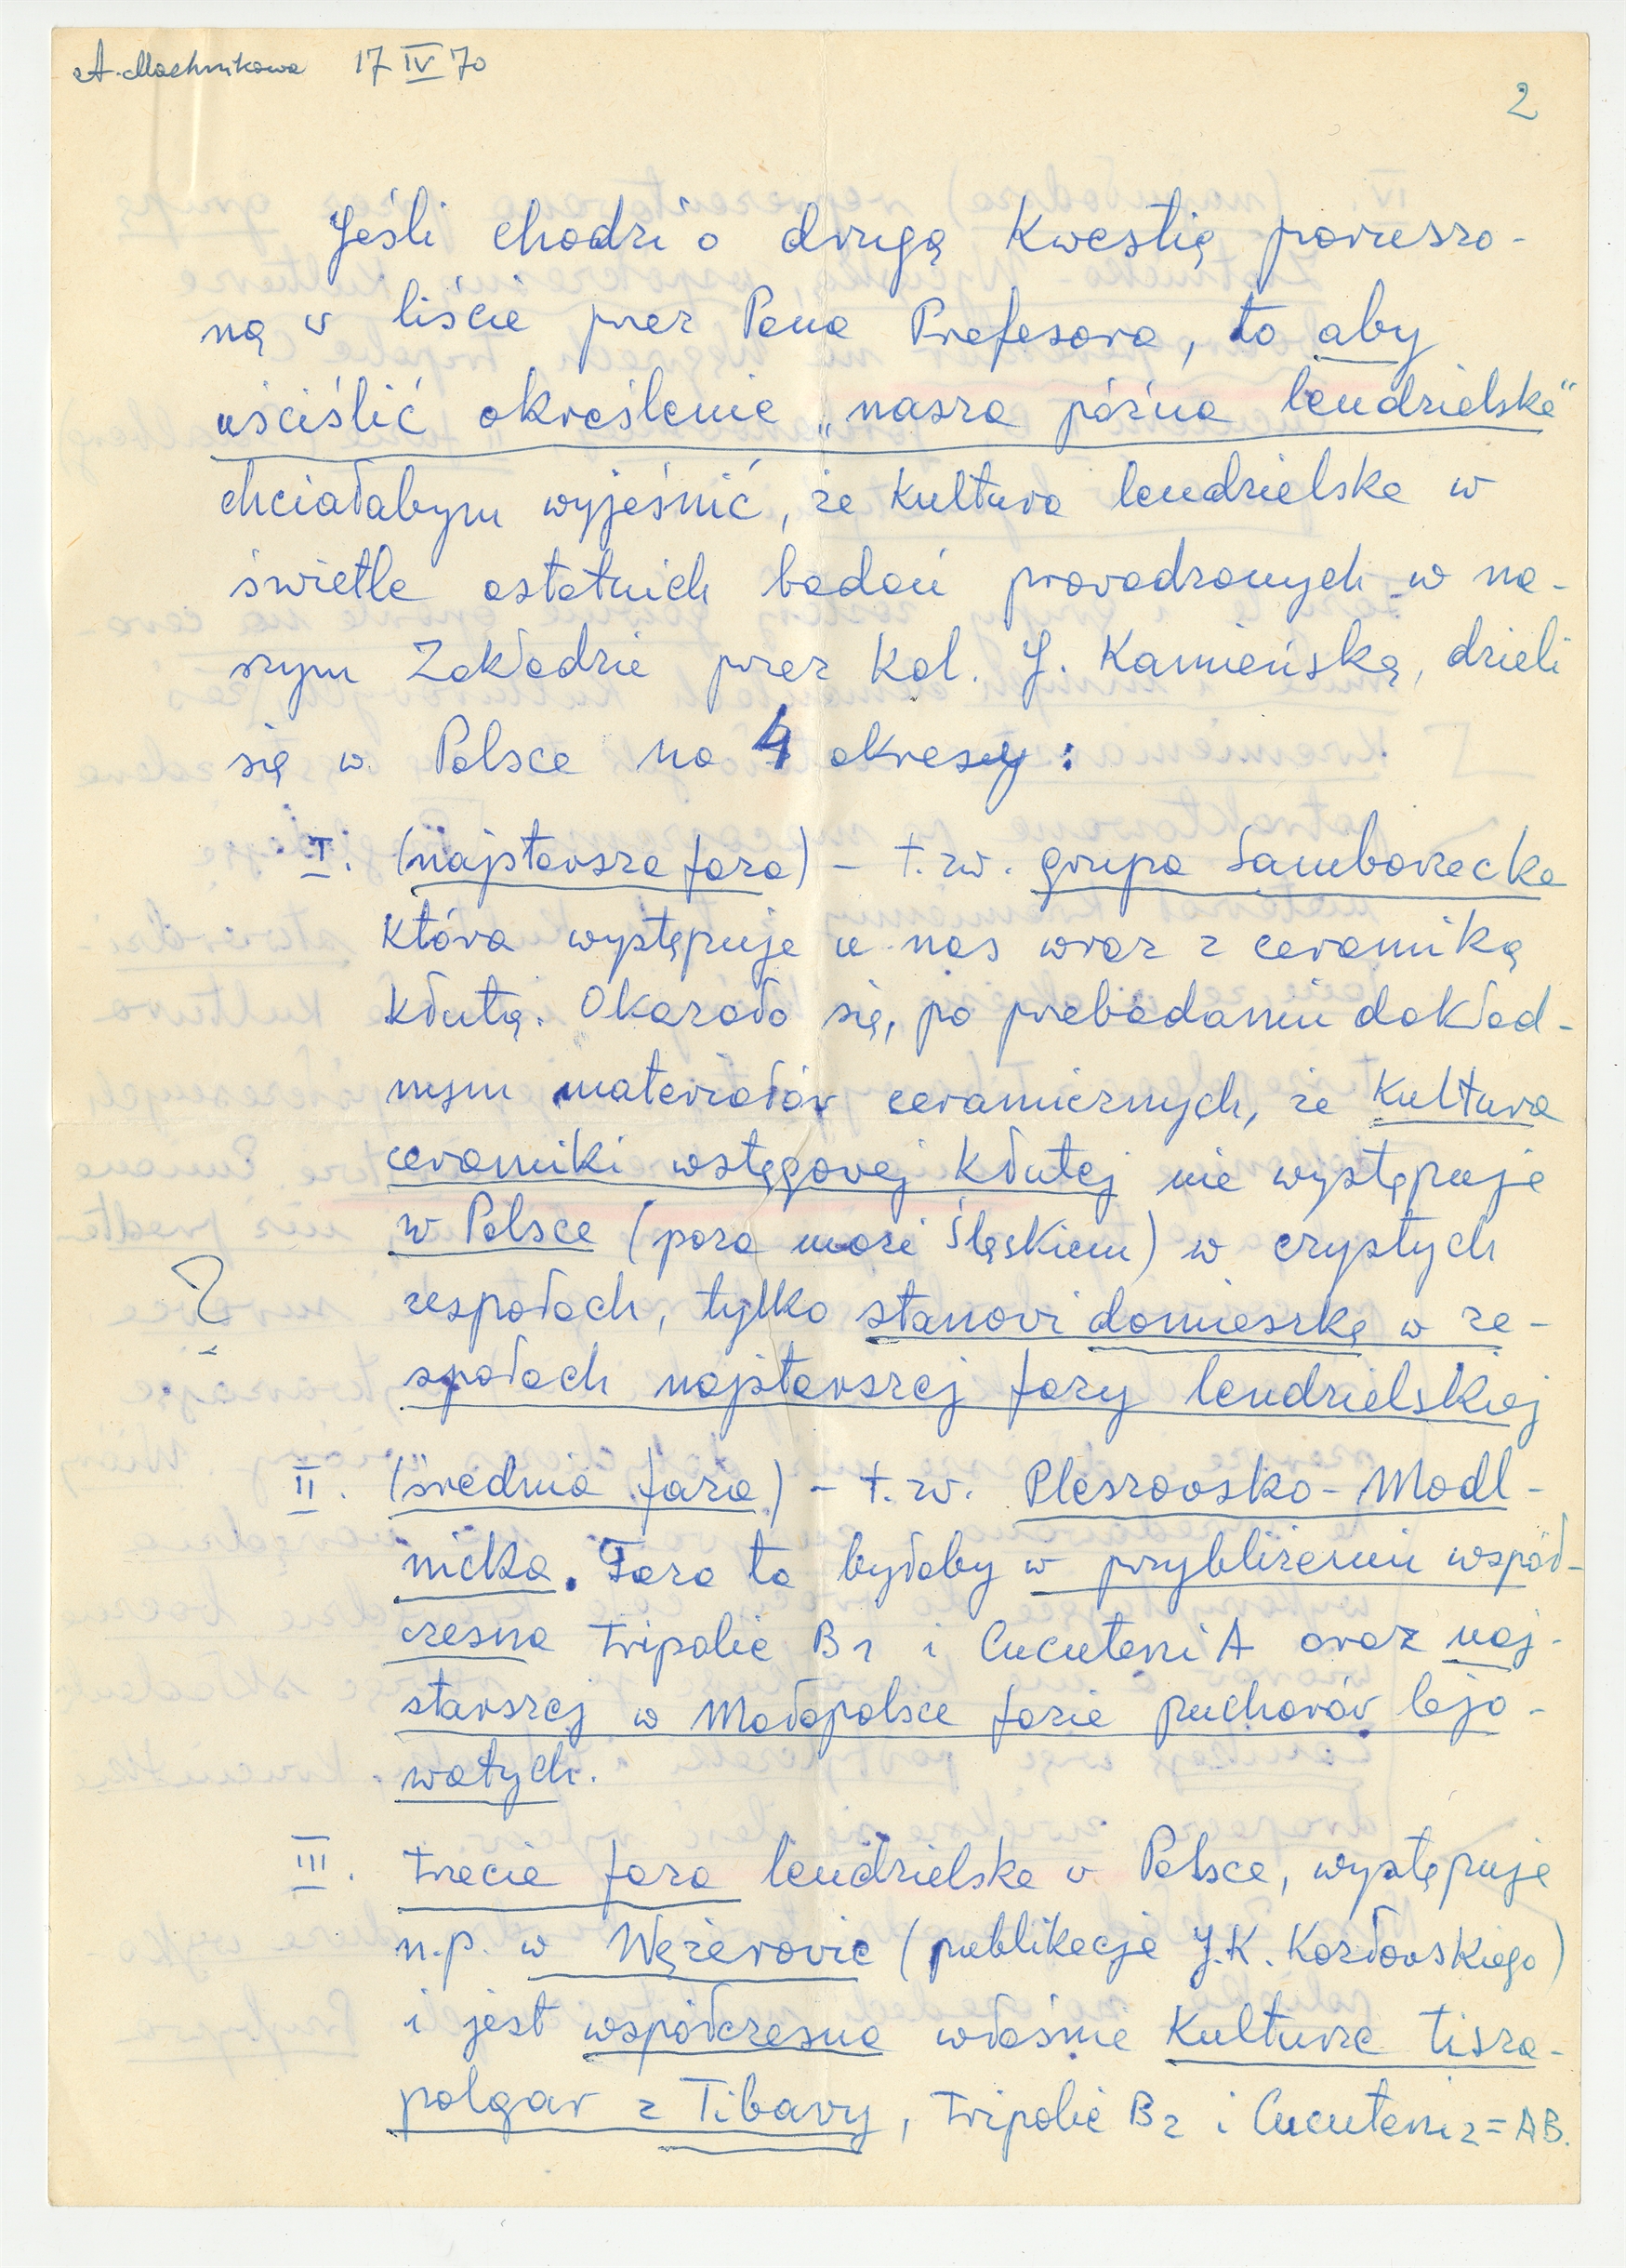 A. Machnikowa 17 IV 70
2
Jeśli chodzi o drugą kwestię poruszo-
ną w liście przez Pana Profesora, to aby
uściślić określenie „nasza późna lendzielska"
chciałabym wyjaśnić, że kultura lendzielska w
świetle ostatnich badań prowadzonych w na-
szym Zakładzie przez kol. J. Kamieńską, dzieli
się w Polsce na 4 okresy:
I. (najstarsza faza) - t.zw. grupa Samborzecka
która występuje u nas wraz z ceramiką
kłutą. Okazało się, po przebadaniu dokład-
nym materiałów ceramicznych, że kultura
ceramiki wstęgowej kłutej nie występuje
w Polsce (poza może Śląskiem) w czystych
zespołach, tylko stanowi domieszkę w ze-
?
społach najstarszej fazy lendzielskiej
II. (średnia faza) - t.zw. Pleszowsko-Modl-
nicka. Faza ta byłaby w przybliżeniu współ-
czesna Tripolie B1 i Cucuteni A oraz naj-
starszej w Małopolsce fazie pucharów lejo-
watych.
III. trzecia faza lendzielska w Polsce, występuje
n.p. w Wężerowie (publikacja J.K. Kozłowskiego)
i jest współczesna właśnie kulturze tisza-
polgar z Tibavy, Tripolie B2 i Cucuteni2=AB.